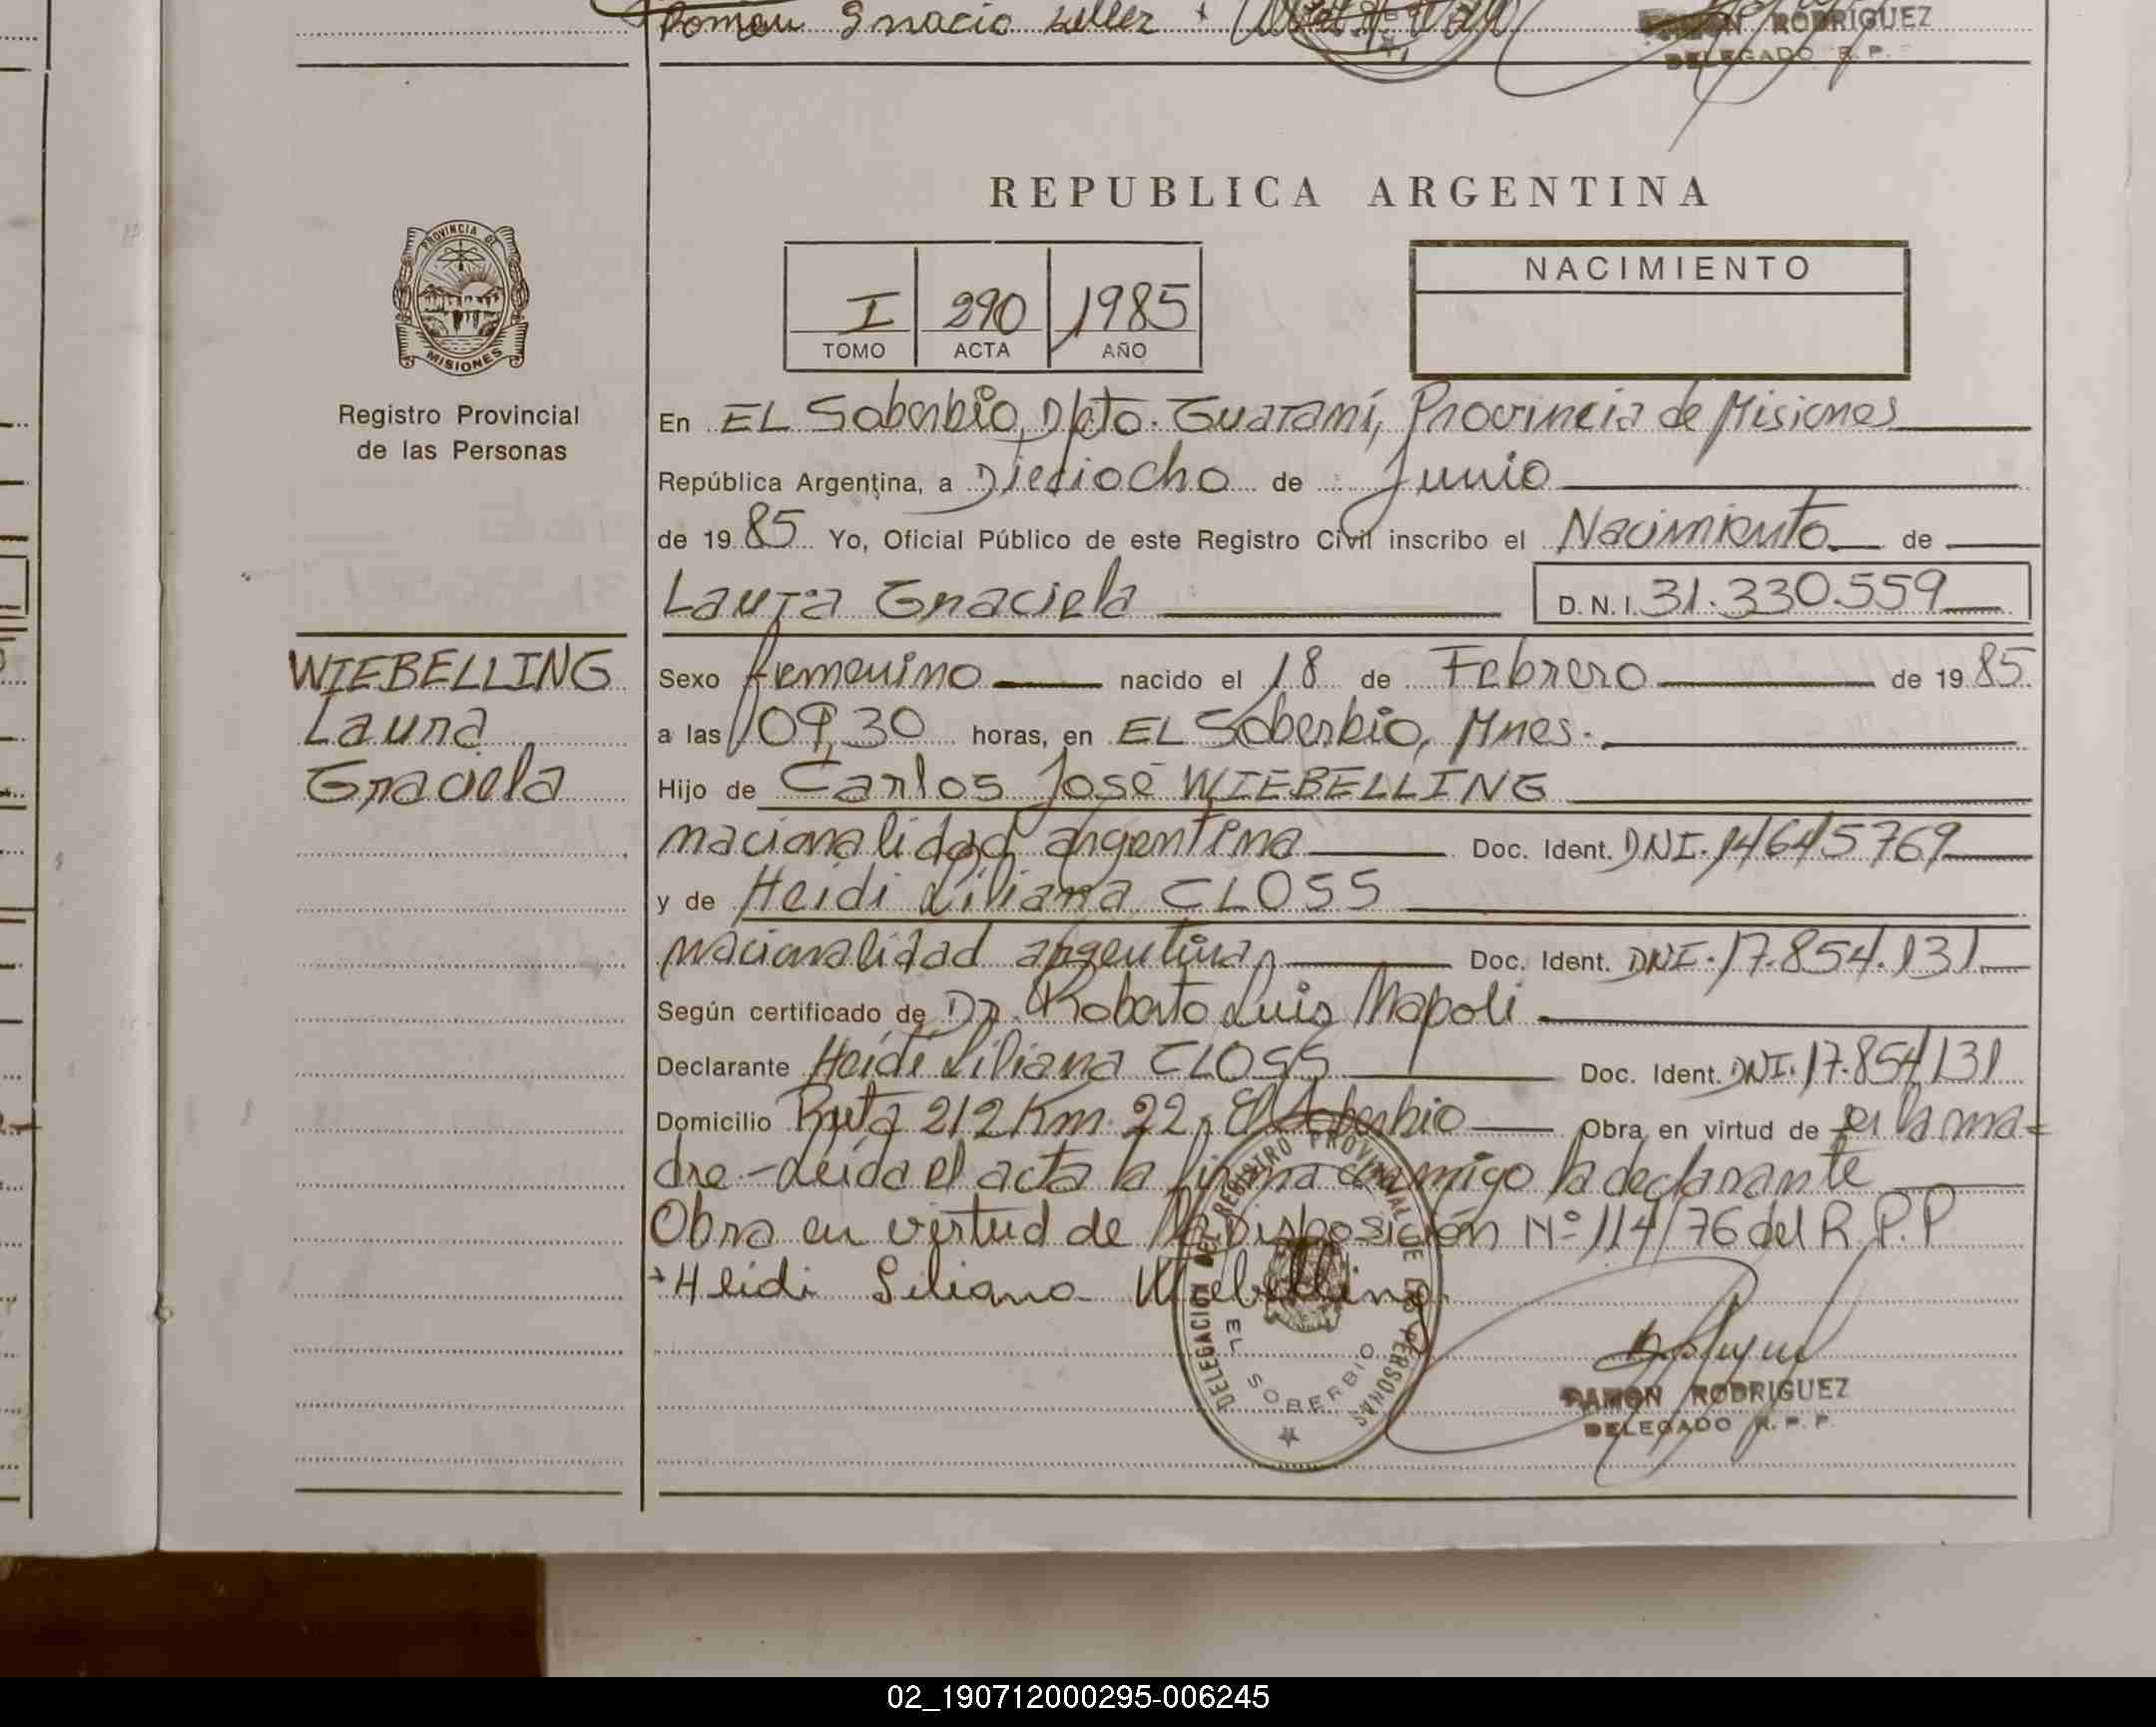 Roman Ignacio Keller +
RAMON RODRIGUEZ
DELEGADO R. P.
REPUBLICA ARGENTINA
PROVINCIA DE
MISIONES
Registro Provincial
de las Personas
I 290 1985
TOMO ACTA AÑO
NACIMIENTO
En EL Soberbio, Dpto. Guaraní, Provincia de Misiones
República Argentina, a Dieciocho de Junio
de 1985 Yo, Oficial Público de este Registro Civil inscribo el Nacimiento de
Laura Graciela D. N. I. 31.330.559
WIEBELLING
Laura
Graciela
Sexo femenino nacido el 18 de Febrero de 1985.
a las 09,30 horas, en EL Soberbio, Mnes.
Hijo de Carlos José WIEBELLING
nacionalidad argentina Doc. Ident. DNI. 14645769
y de Heidi Liliana CLOSS
nacionalidad argentina Doc. Ident. DNI. 17.854.131
Según certificado de Dr. Roberto Luis Napoli
Declarante Heidi Liliana CLOSS Doc. Ident. DNI. 17.854131
Domicilio Ruta 212 Km. 22, El Soberbio Obra en virtud de ser la ma=
dre.-Leída el acta la firma conmigo la declarante
Obra en virtud de la Disposición Nº 114/76 del R.P.P
+Heidi Liliana Wiebelling
DELEGACION DEL REGISTRO PROVINCIAL DE LAS PERSONAS
EL SOBERBIO
RAMON RODRIGUEZ
DELEGADO R. P. P.
02_190712000295-006245